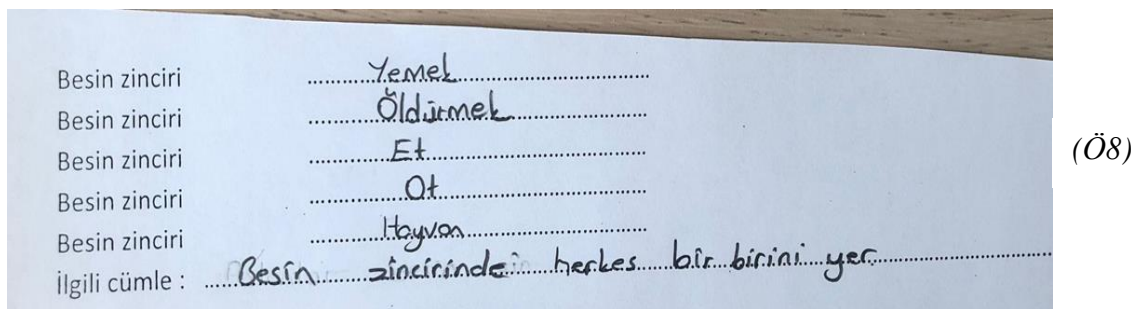 Besin zinciri ..........Yemek..............................
Besin zinciri ..........Öldürmek........................
Besin zinciri ..........Et..............................
Besin zinciri ..........Ot..............................
Besin zinciri ..........Hayvan..............................
İlgili cümle : .....Besin zincirinde herkes bir birini yer..............................
(Ö8)